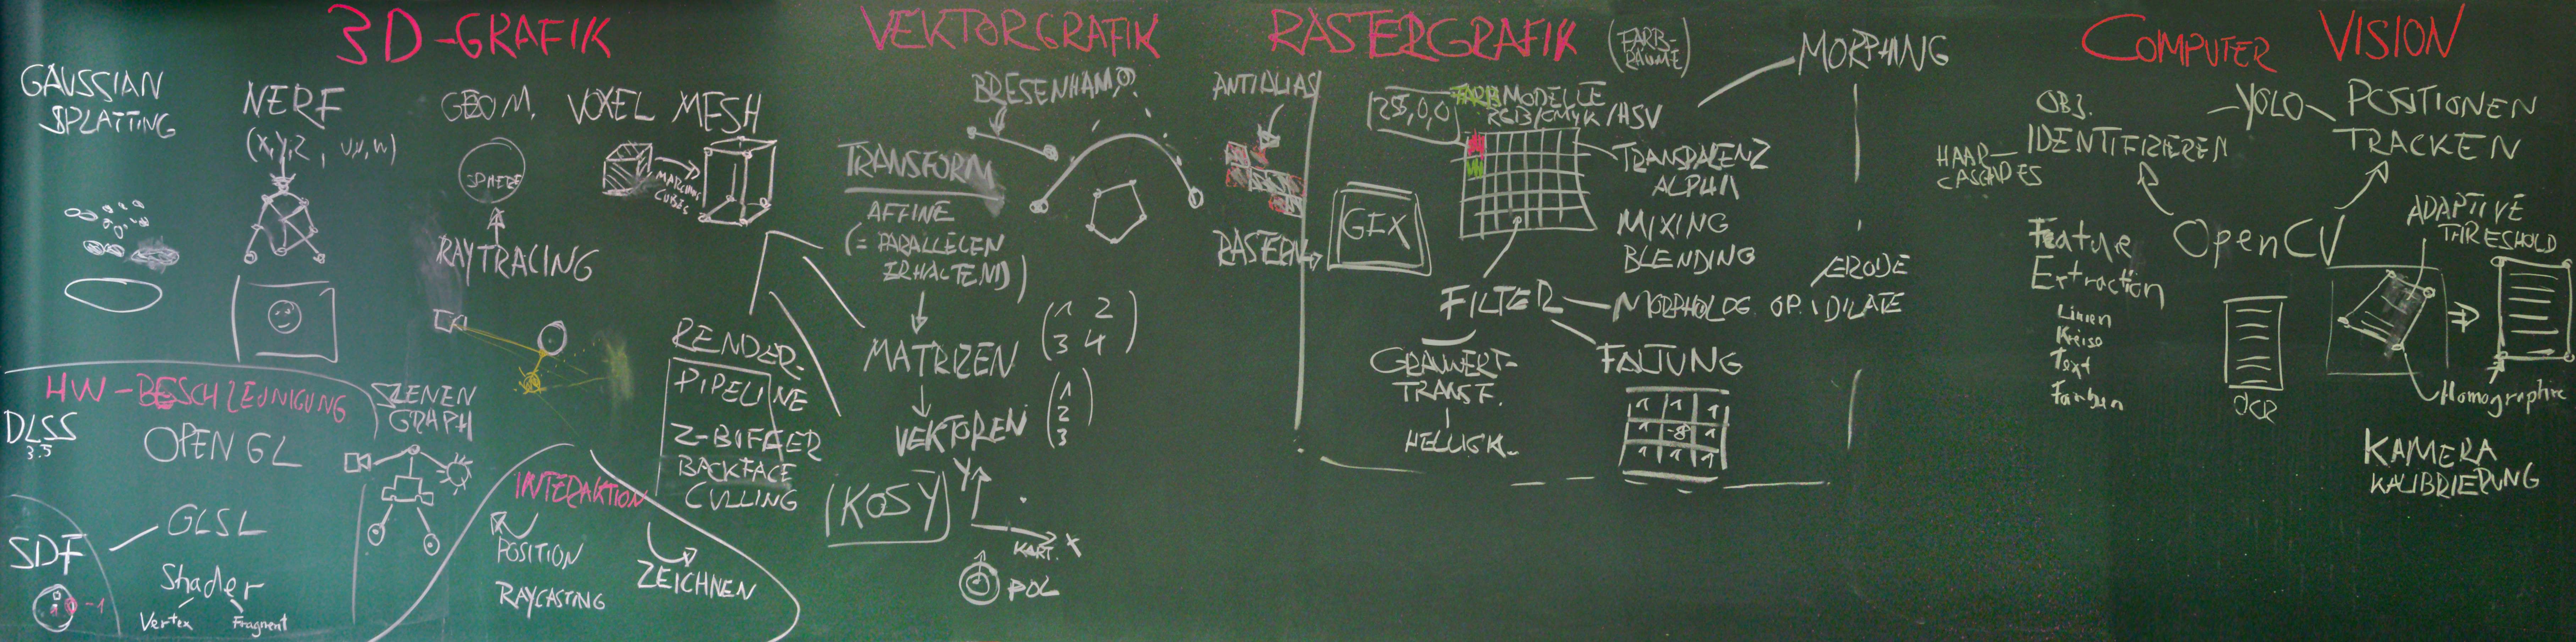 3D-GRAFIK
GAUSSIAN
SPLATTING
NERF
(X,Y,Z, U,V,W)
GEOM.
SPHERE
RAYTRACING
VOXEL MESH
MARCHING
CUBES
HW-BESCHLEUNIGUNG
DLSS
3.5
OPEN GL
SZENEN
GRAPH
SDF
-1
GLSL
Shader
Vertex
Fragment
INTERAKTION
POSITION
RAYCASTING
ZEICHNEN
RENDER-
PIPELINE
Z-BUFFER
BACKFACE
CULLING
VEKTORGRAFIK
BRESENHAM
TRANSFORM
AFFINE
(= PARALLELEN
ERHALTEND)
MATRIZEN
1 2
3 4
VEKTOREN
1
2
3
(KOSY)
Y
X
KART.
POL
ANTIALIAS
RASTERN
RASTERGRAFIK
(FARB-
RÄUME)
255,0,0
FARBMODELLE
RGB/CMYK/HSV
GIX
TRANSPARENZ
ALPHA
MIXING
BLENDING
FILTER
MORPHOLOG. OP.
ERODE
DILATE
GRAUWERT-
TRANSF.
HELLIGK.
FALTUNG
1 1 1
1 -8 1
1 1 1
MORPHING
COMPUTER VISION
OBJ.
IDENTIFIZIEREN
HAAR
CASCADES
YOLO
POSITIONEN
TRACKEN
OpenCV
Feature
Extraction
Linien
Kreise
Text
Farben
OCR
ADAPTIVE
THRESHOLD
Homographie
KAMERA
KALIBRIERUNG